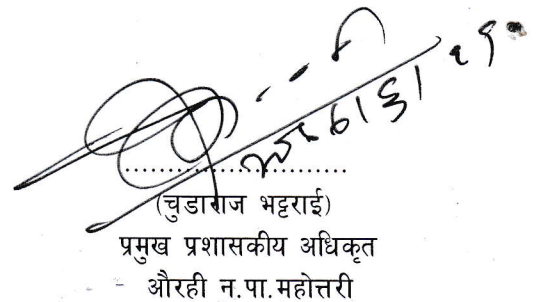 (चुडाराज भट्टराई)
प्रमुख प्रशासकीय अधिकृत
औरही न.पा.महोत्तरी